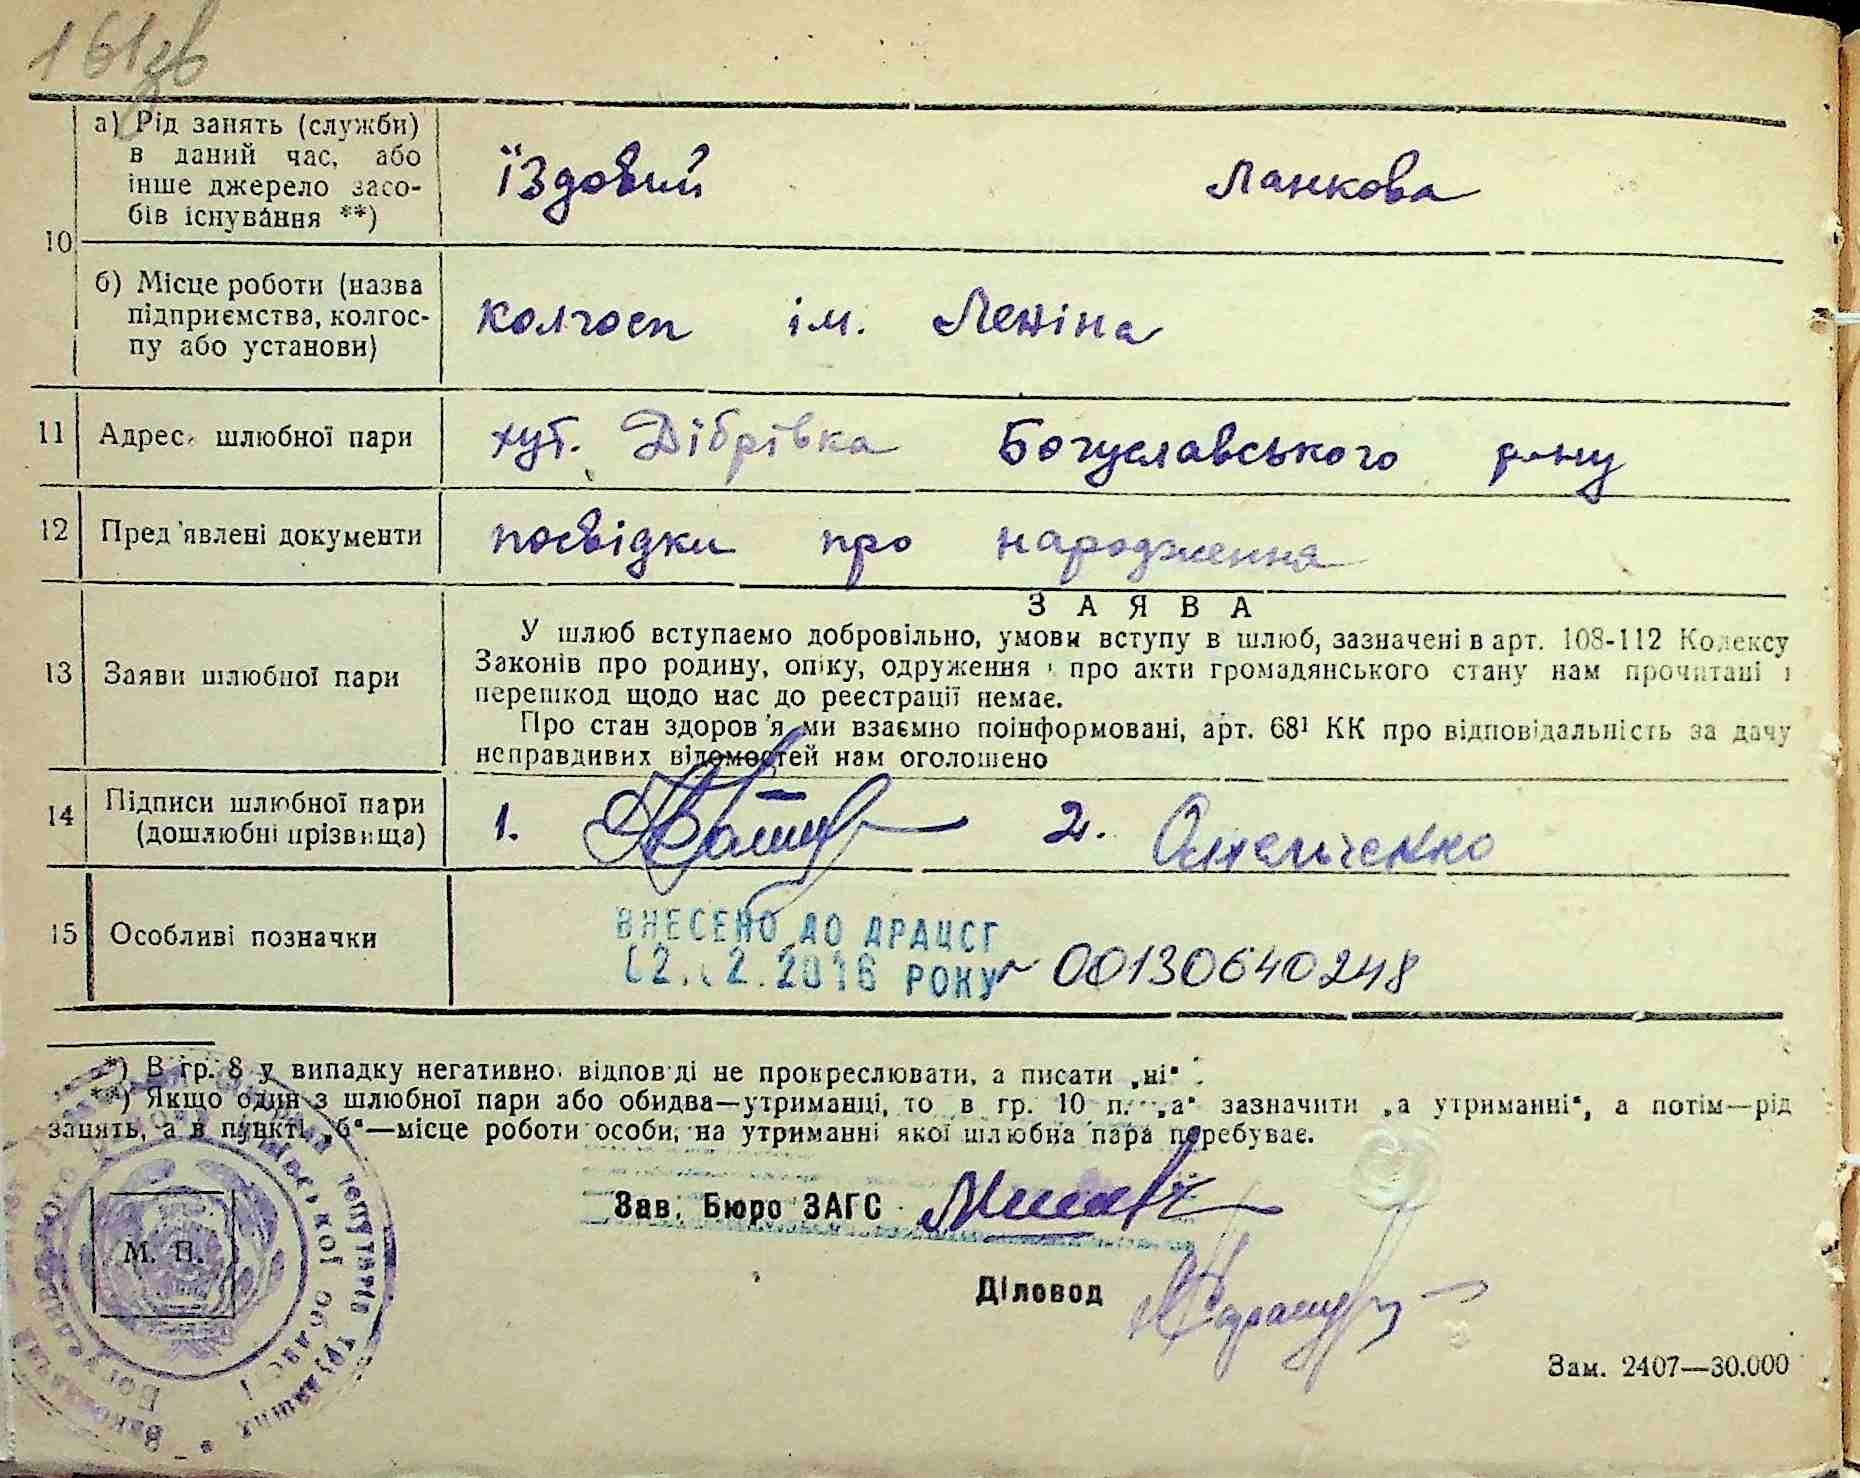 161зв
10
а) Рід занять (служби)
в даний час, або
інше джерело засо-
бів існування **)
їздовий ланкова
б) Місце роботи (назва
підприємства, колгос-
пу або установи)
колгосп ім. Леніна
11 Адреса шлюбної пари хут. Дібрівка Богуславського р-ну
12 Пред'явлені документи посвідки про народження
13 Заяви шлюбної пари
ЗАЯВА
У шлюб вступаємо добровільно, умови вступу в шлюб, зазначені в арт. 108-112 Кодексу
Законів про родину, опіку, одруження і про акти громадянського стану нам прочитані і
перешкод щодо нас до реєстрації немає.
Про стан здоров'я ми взаємно поінформовані, арт. 68¹ КК про відповідальність за дачу
неправдивих відомостей нам оголошено
14 Підписи шлюбної пари
(дошлюбні прізвища)
1. 2. Омельченко
15 Особливі позначки
ВНЕСЕНО ДО ДРАЦСГ
2016 РОКУ 00130640248
*) В гр. 8 у випадку негативної відповіді не прокреслювати, а писати „ні“.
**) Якщо один з шлюбної пари або обидва—утриманці, то в гр. 10 п. „а“ зазначити „а утриманні“, а потім—рід
занять, а в пункті „б“—місце роботи особи, на утриманні якої шлюбна пара перебуває.
Зав. Бюро ЗАГС
М. П.
Діловод
Зам. 2407—30.000